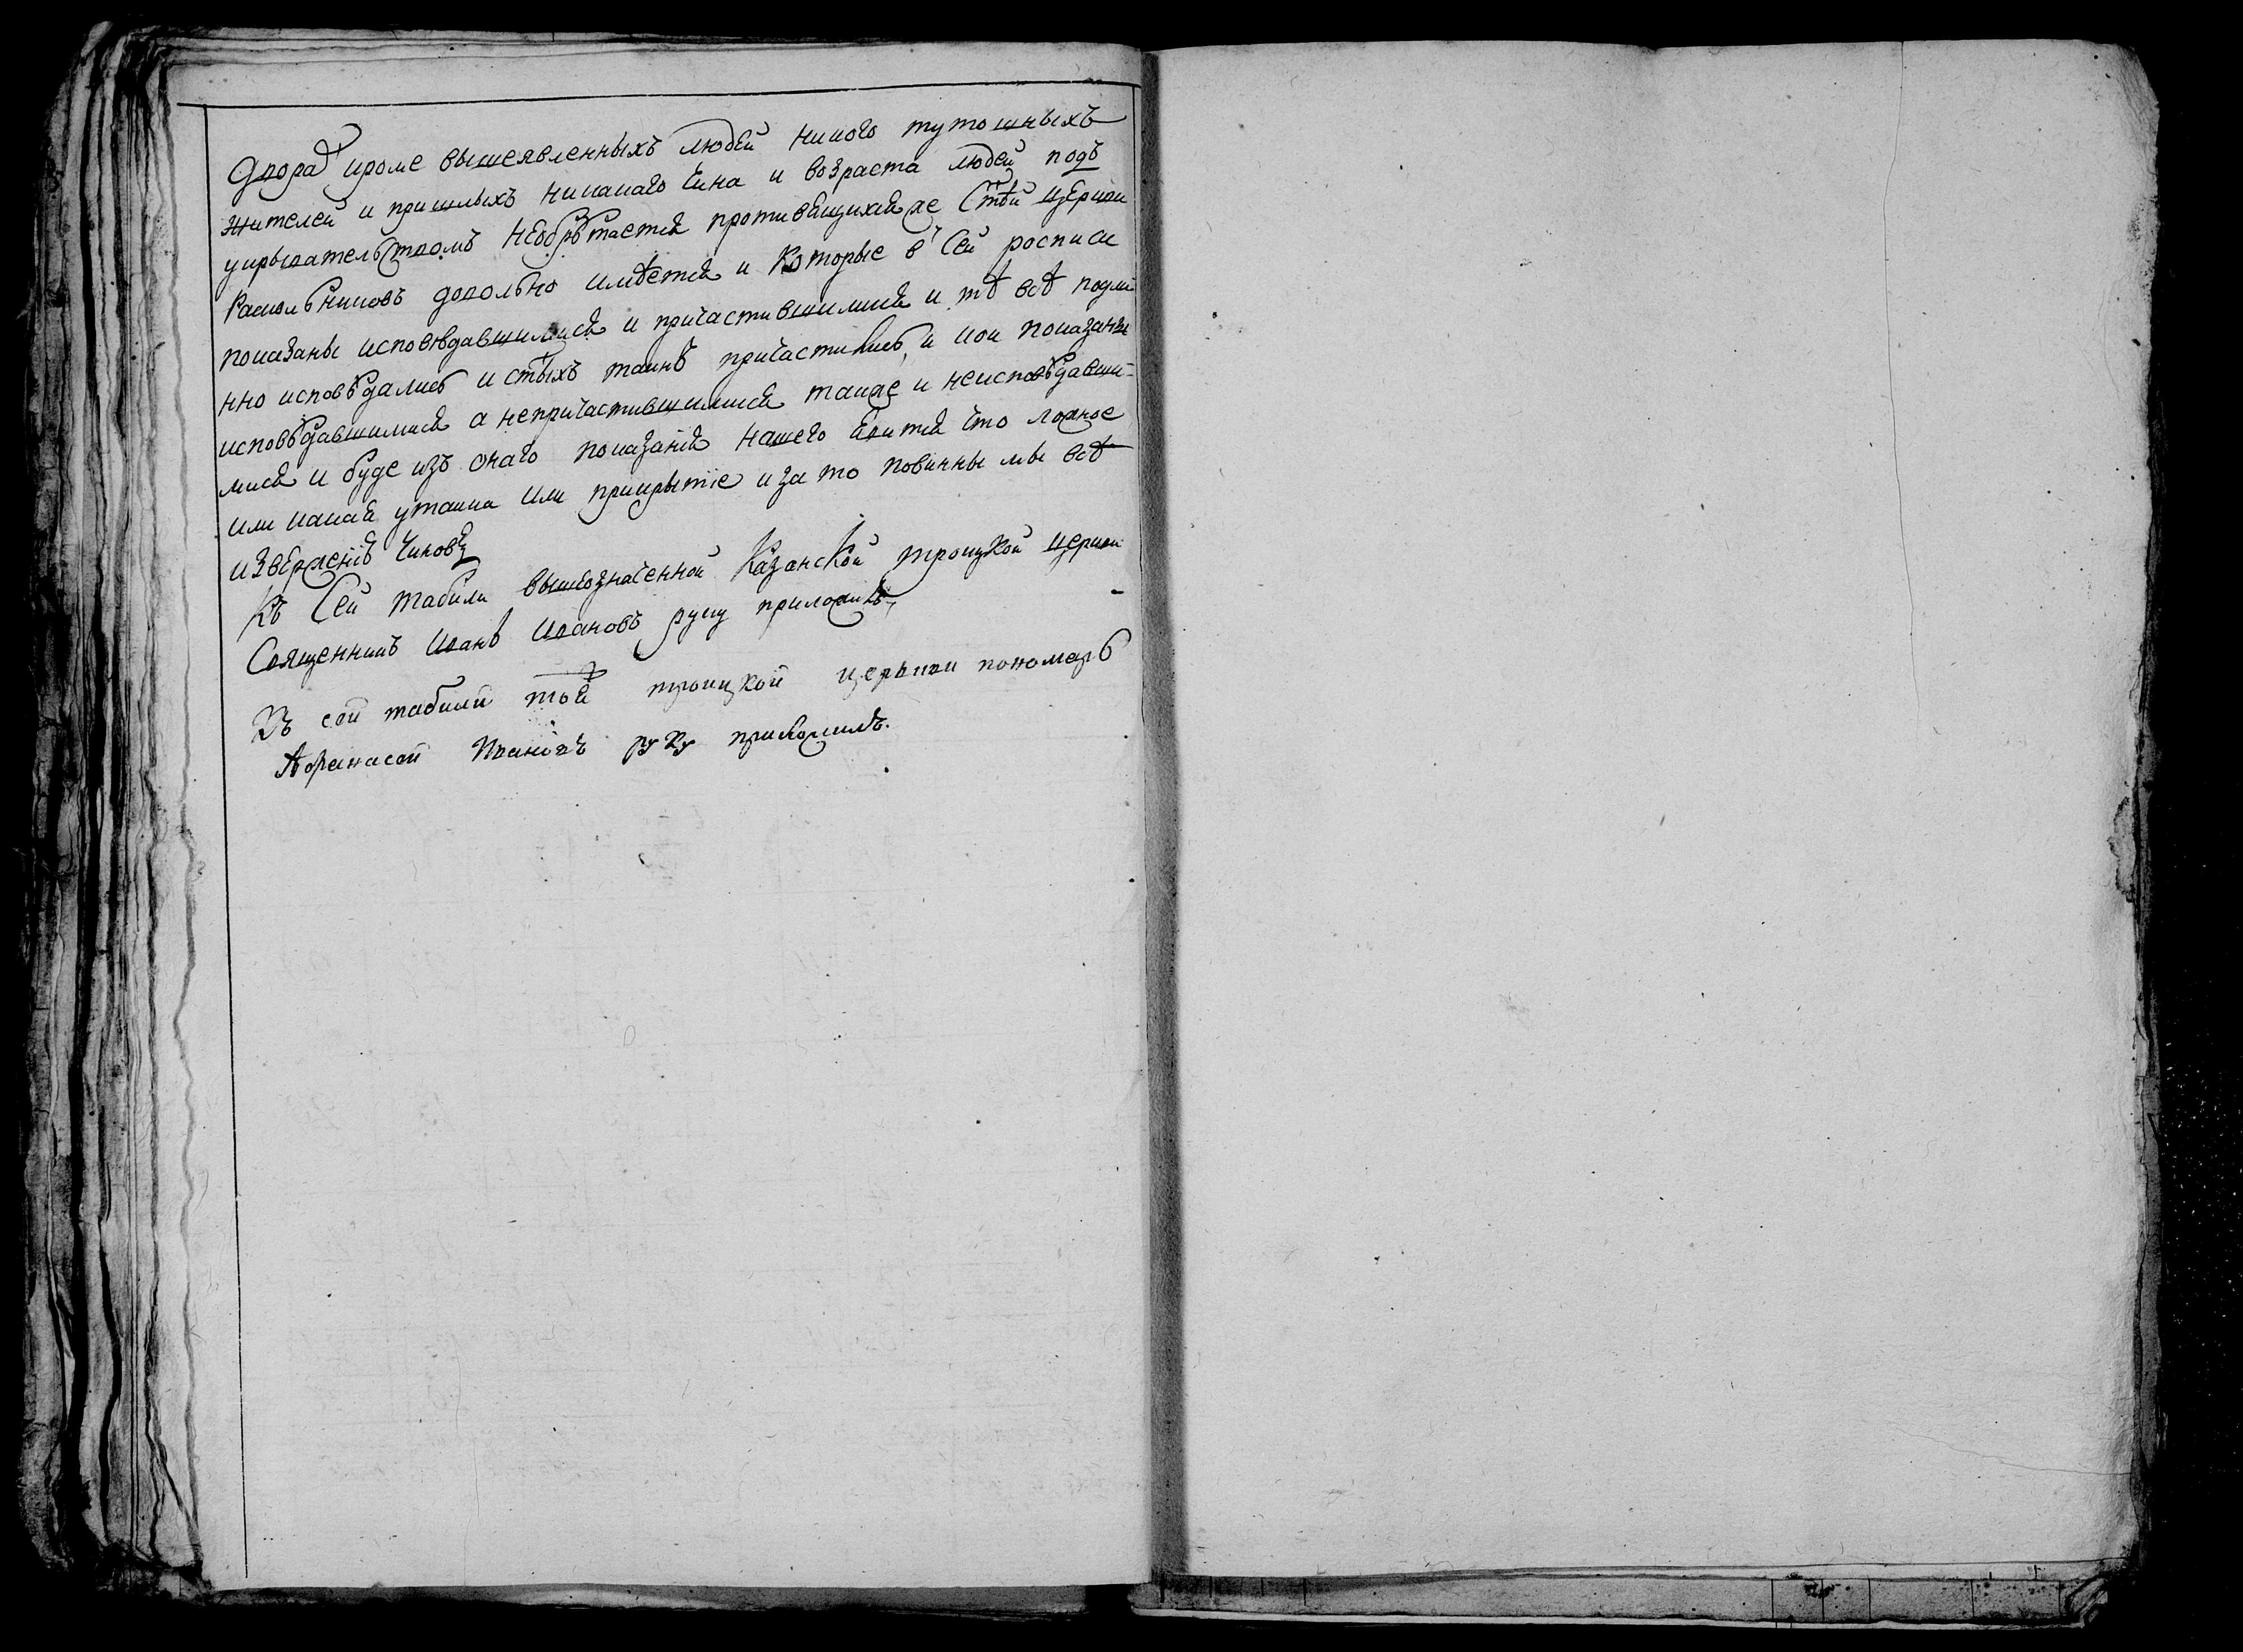 двора кроме вышеявленныхъ людей никого тутошныхъ
жителей и пришлыхъ никакаго чина и возраста людей подъ
укрывательствомъ необрѣтается противящихся же стѣй церкви
раскольниковъ довольно имѣется и которые в сей росписи
показаны исповѣдавшимися и причастившимися и тѣ всѣ подли
нно исповѣдались и стыхъ таинъ причастились, и кои показаны
исповѣдавшимися а непричастившимися также и неисповѣдавши-
мися и буде изъ онаго показанія нашего явится что ложное
или какая утайка или прикрытіе и за то повинны мы всѣ
изверженію чиновъ
Къ сей табели вышеозначенной Казанской троицкой церкви
Священникъ Иванъ Ивановъ руку приложилъ
Къ сей табели той троицкой церькви пономарь
Афанасей Ивановъ руку приложилъ.